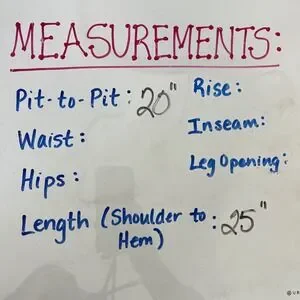 MEASUREMENTS:
Pit-to-Pit: 20"
Waist:
Hips:
Length (Shoulder to Hem): 25"
Rise:
Inseam:
Leg Opening: